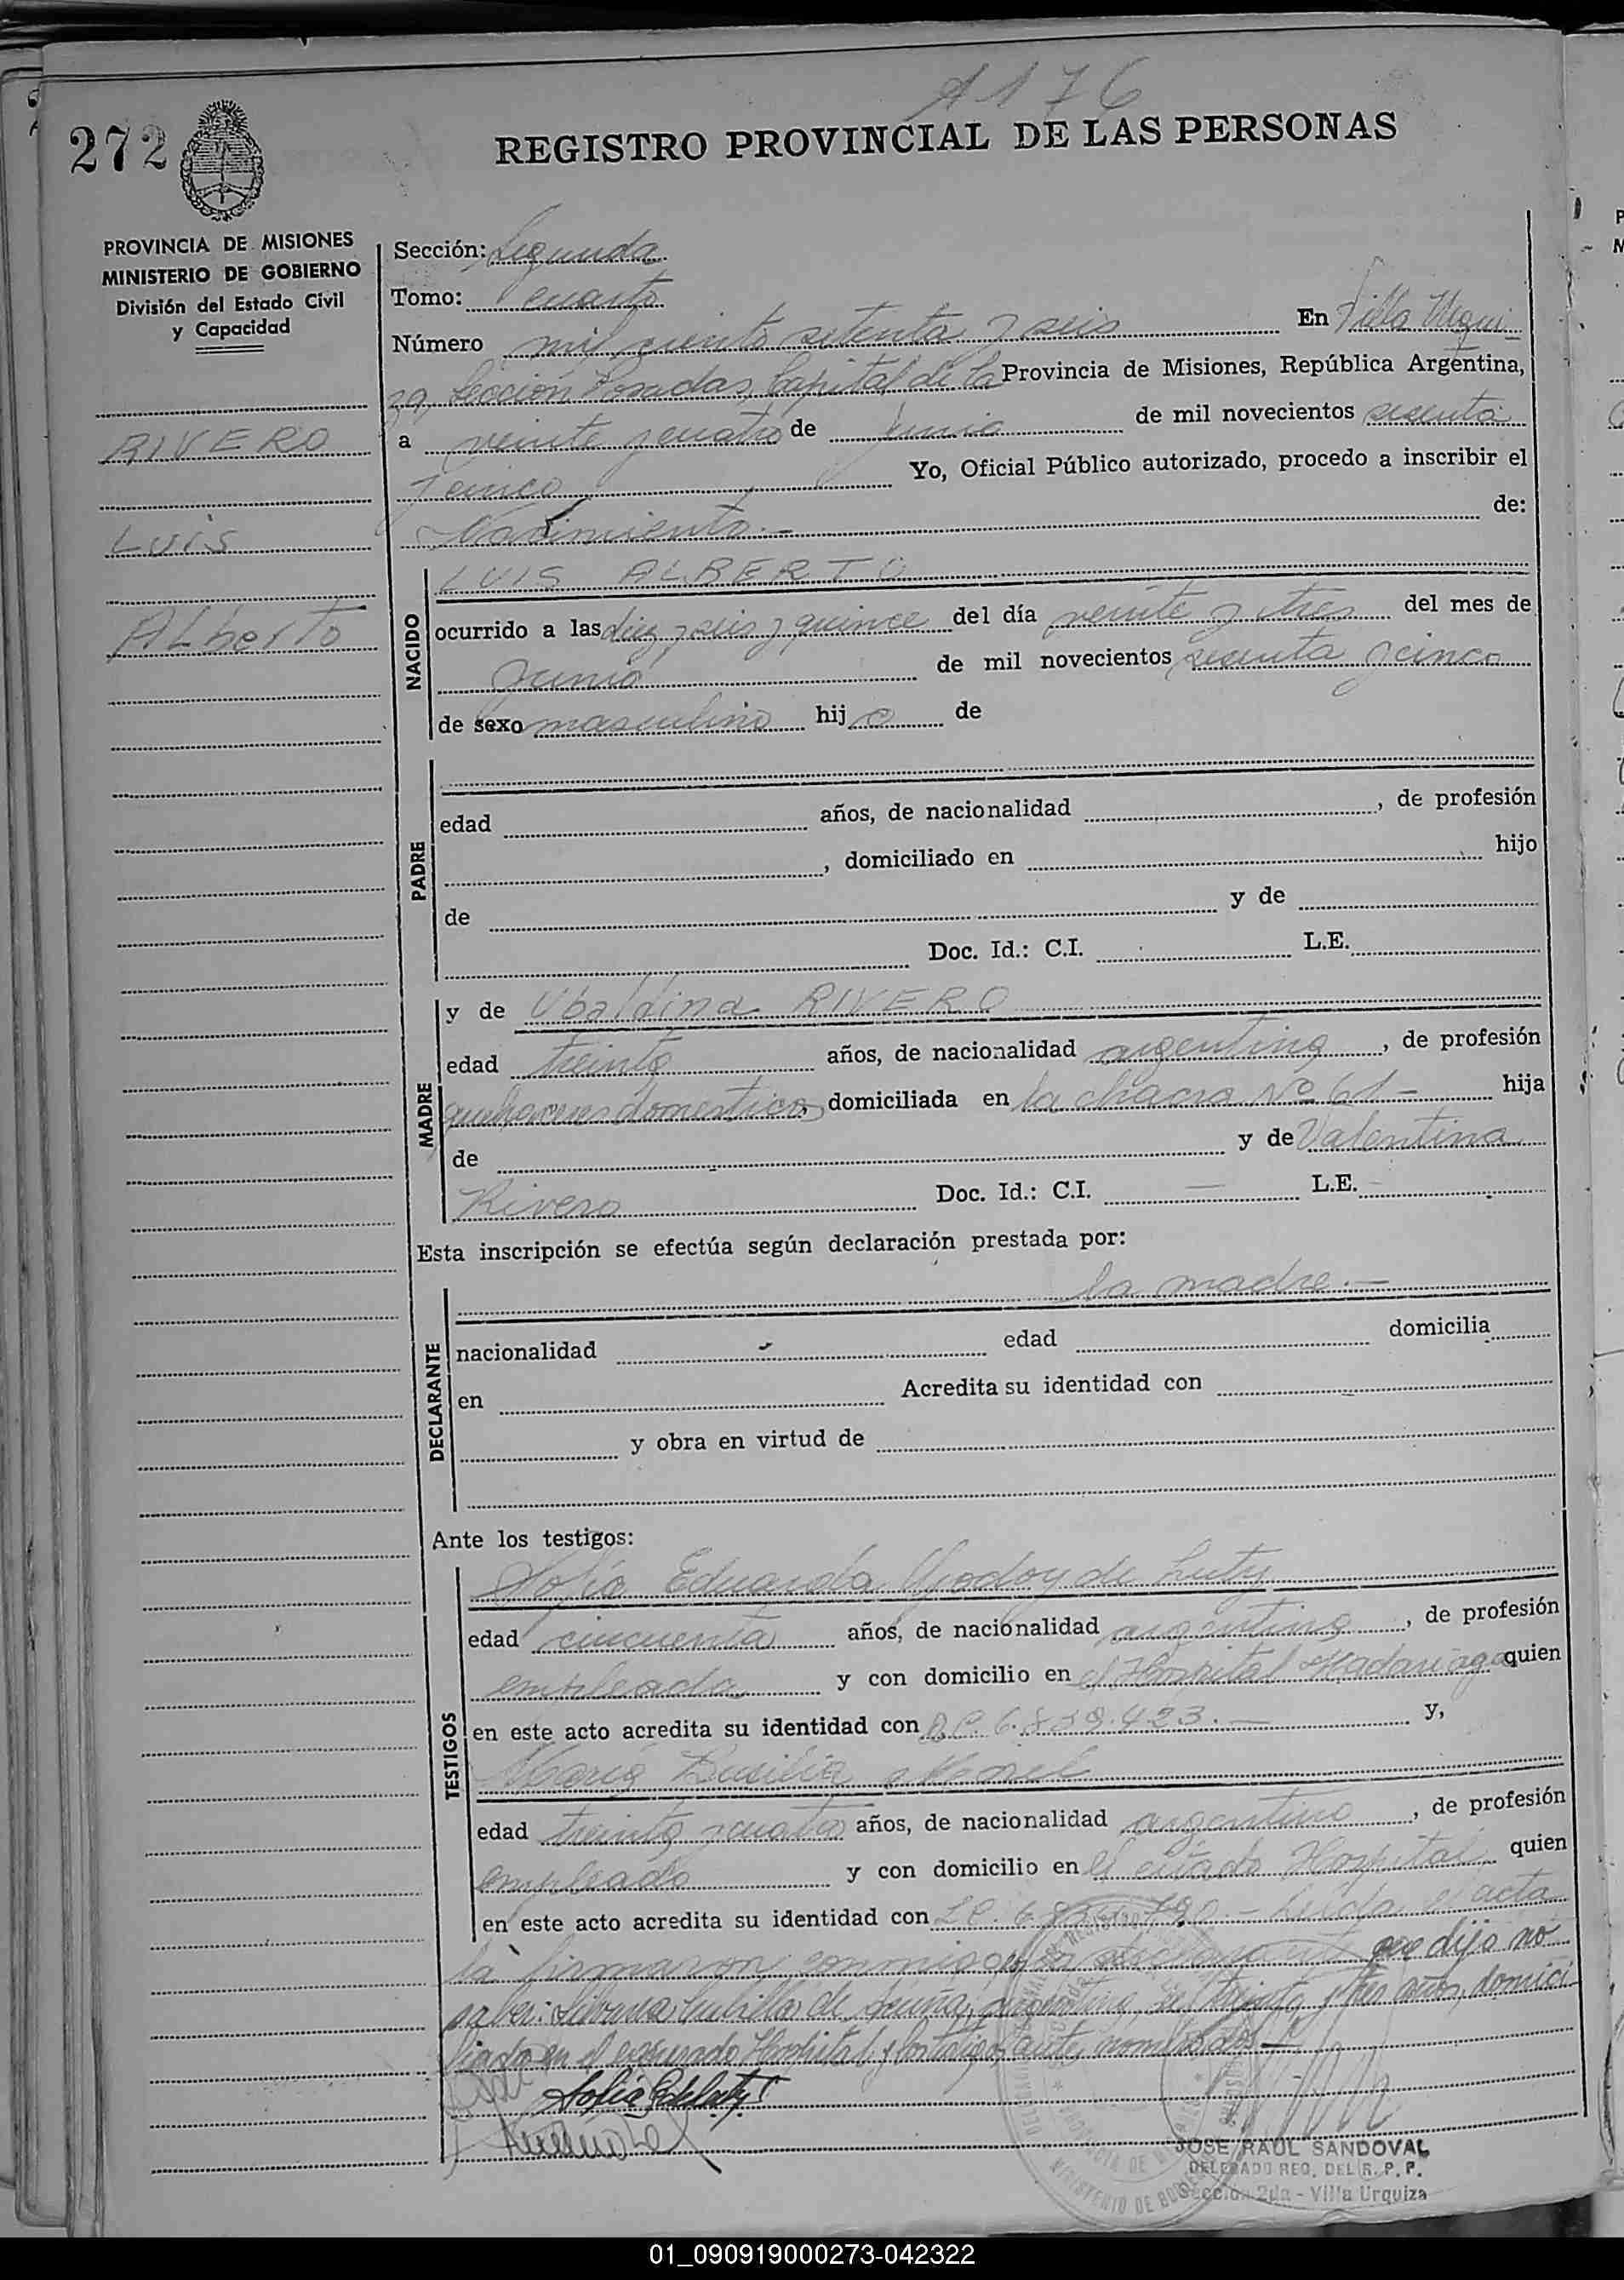 A 1176
272
REGISTRO PROVINCIAL DE LAS PERSONAS
PROVINCIA DE MISIONES
MINISTERIO DE GOBIERNO
División del Estado Civil
y Capacidad
RIVERO
Luis
ALberto
Sección: Segunda
Tomo: cuarto
Número mil ciento setenta y seis En Villa Urqui
za, Sección Posadas, Capital de la Provincia de Misiones, República Argentina,
a veinte y cuatro de Junio de mil novecientos sesenta
y cinco Yo, Oficial Público autorizado, procedo a inscribir el
Nacimiento.— de:
NACIDO
LUIS ALBERTO
ocurrido a las diez y seis y quince del día veinte y tres del mes de
Junio de mil novecientos sesenta y cinco
de sexo masculino hij o de
PADRE
edad años, de nacionalidad , de profesión
, domiciliado en hijo
de y de
Doc. Id.: C.I. L.E.
MADRE
y de Ubaldina RIVERO
edad treinta años, de nacionalidad argentina, de profesión
quehaceres domesticos, domiciliada en la chacra Nº 61 - hija
de y de Valentina
Rivero Doc. Id.: C.I. — L.E. -
Esta inscripción se efectúa según declaración prestada por:
DECLARANTE
la madre.—
nacionalidad edad domicilia
en Acredita su identidad con
y obra en virtud de
Ante los testigos:
TESTIGOS
Sofia Eduarda Godoy de Luty
edad cincuenta años, de nacionalidad argentina, de profesión
empleada y con domicilio en el Hospital Madariaga quien
en este acto acredita su identidad con 6.839.423.— y,
María
edad treinta y cuatro años, de nacionalidad argentino, de profesión
empleado y con domicilio en el citado Hospital quien
en este acto acredita su identidad con — Leida el acta
la firmaron conmigo por la declarante que dijo no
saber: Cubilla de Acuña, argentina, de treinta y tres años, domici
liada en el expresado Hospital y los testigos antes nombrados —
JOSE RAUL SANDOVAL
DELEGADO REG. DEL R. P. P.
Sección 2da - Villa Urquiza
01_090919000273-042322